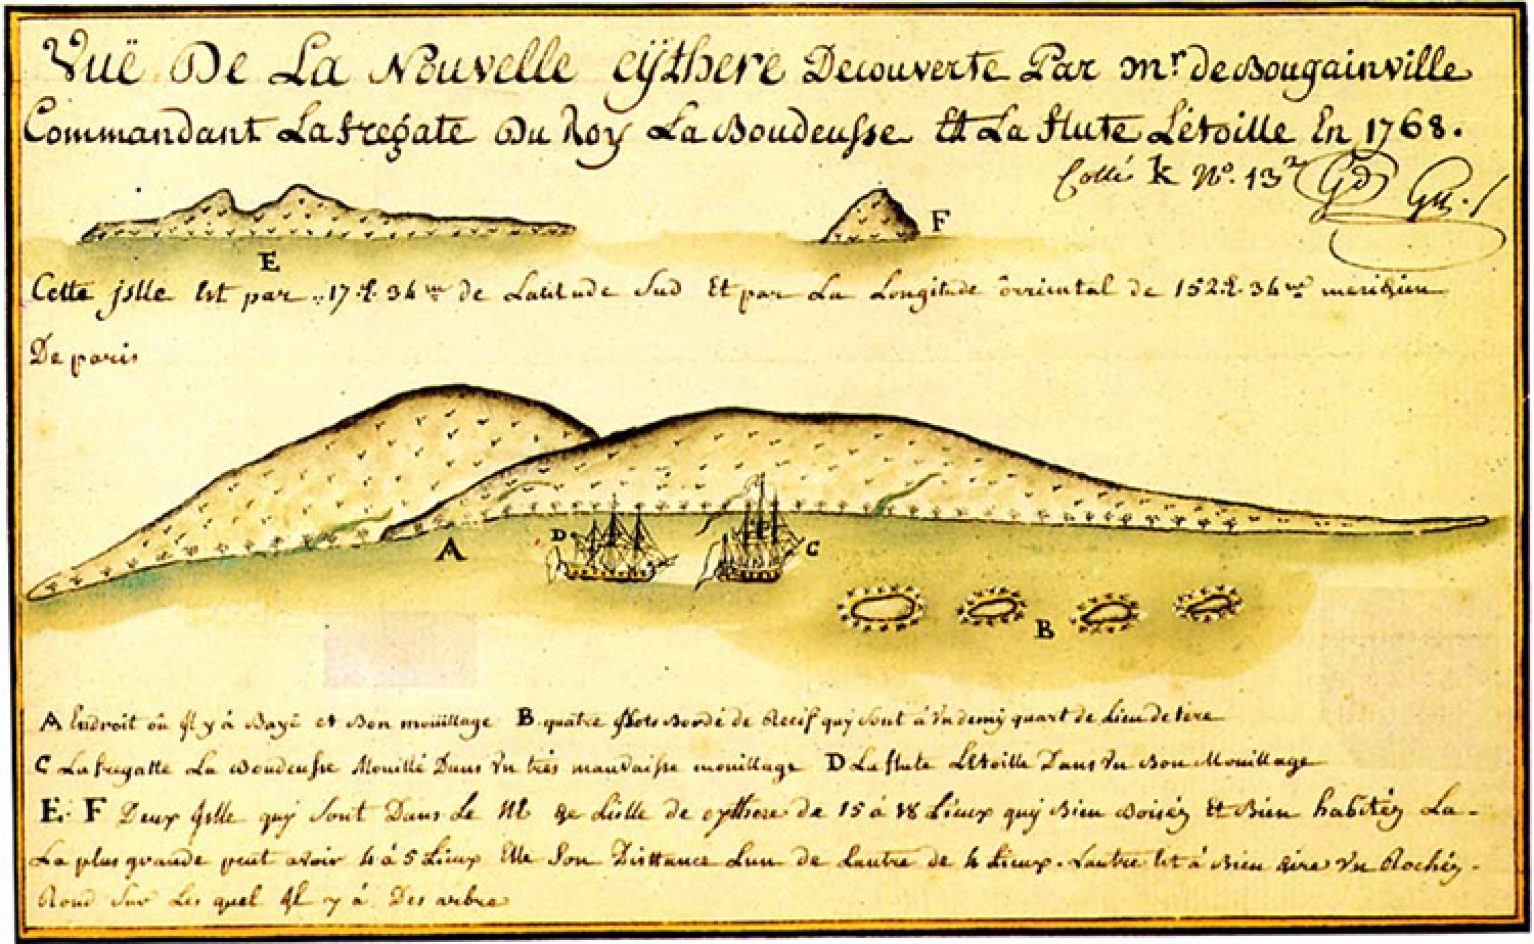 Vuë De La Nouvelle cÿthere Decouverte Par mr. de Bougainville
Commandant La fregate Du Roy La Boudeusse Et La flute Létoille En 1768.
Collé k No. 13
F
E
Cette jslle Est par 17.d. 34 m de Latitude Sud Et par La Longitude orriental de 152.d. 34 m meridien
De paris
D
C
A
B
A Endroit où Jl y á Baye et Bon mouillage B quatre Jlots Bordé de Recif quy sont á un demy quart de Lieu de tére
C La fregatte La Boudeusse Mouillé Dans Un trés mauvaisse mouillage D La flute Létoille Dans Un Bon Mouillage
E. F Deux jslle quy sont Dans Le de Lislle de cythere de 15 á 18 Lieux quy Bien Boiséz Et Bien habitéz La -
La plus grande peut avoir 4 á 5 Lieux Elle Son Disttance Lun de Lautre de 4 Lieux. Lautre Est á Bien dire Un Rochéz -
Rond Sur Les quel Jl y á Des arbre